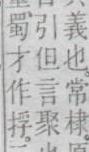 義也。常棣。
引但言聚
蜀才作捋。